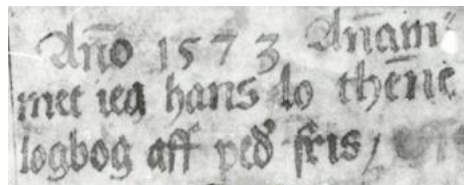 Año 1573 Añam⸗
met ieg hans lo theñe
logbog aff ped̃ fris /